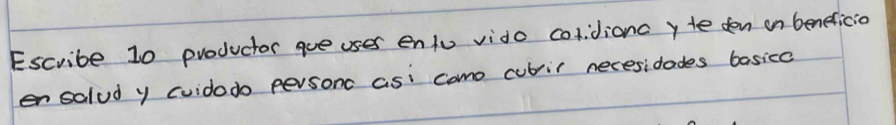 Escribe 10 productos que uses en tu vida cotidiana y te den un beneficio
en salud y cuidado persona asi como cubrir necesidades basica